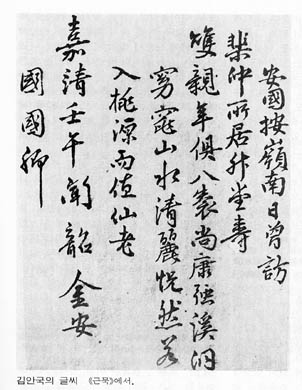 安國按嶺南日曾訪
棐仲所居升堂壽
雙親年俱八袠尚康強溪洞
窈窕山水清麗恍然若
入桃源而値仙老
嘉靖壬午聞韶 金安
國國卿
김안국의 글씨 《근묵》에서.